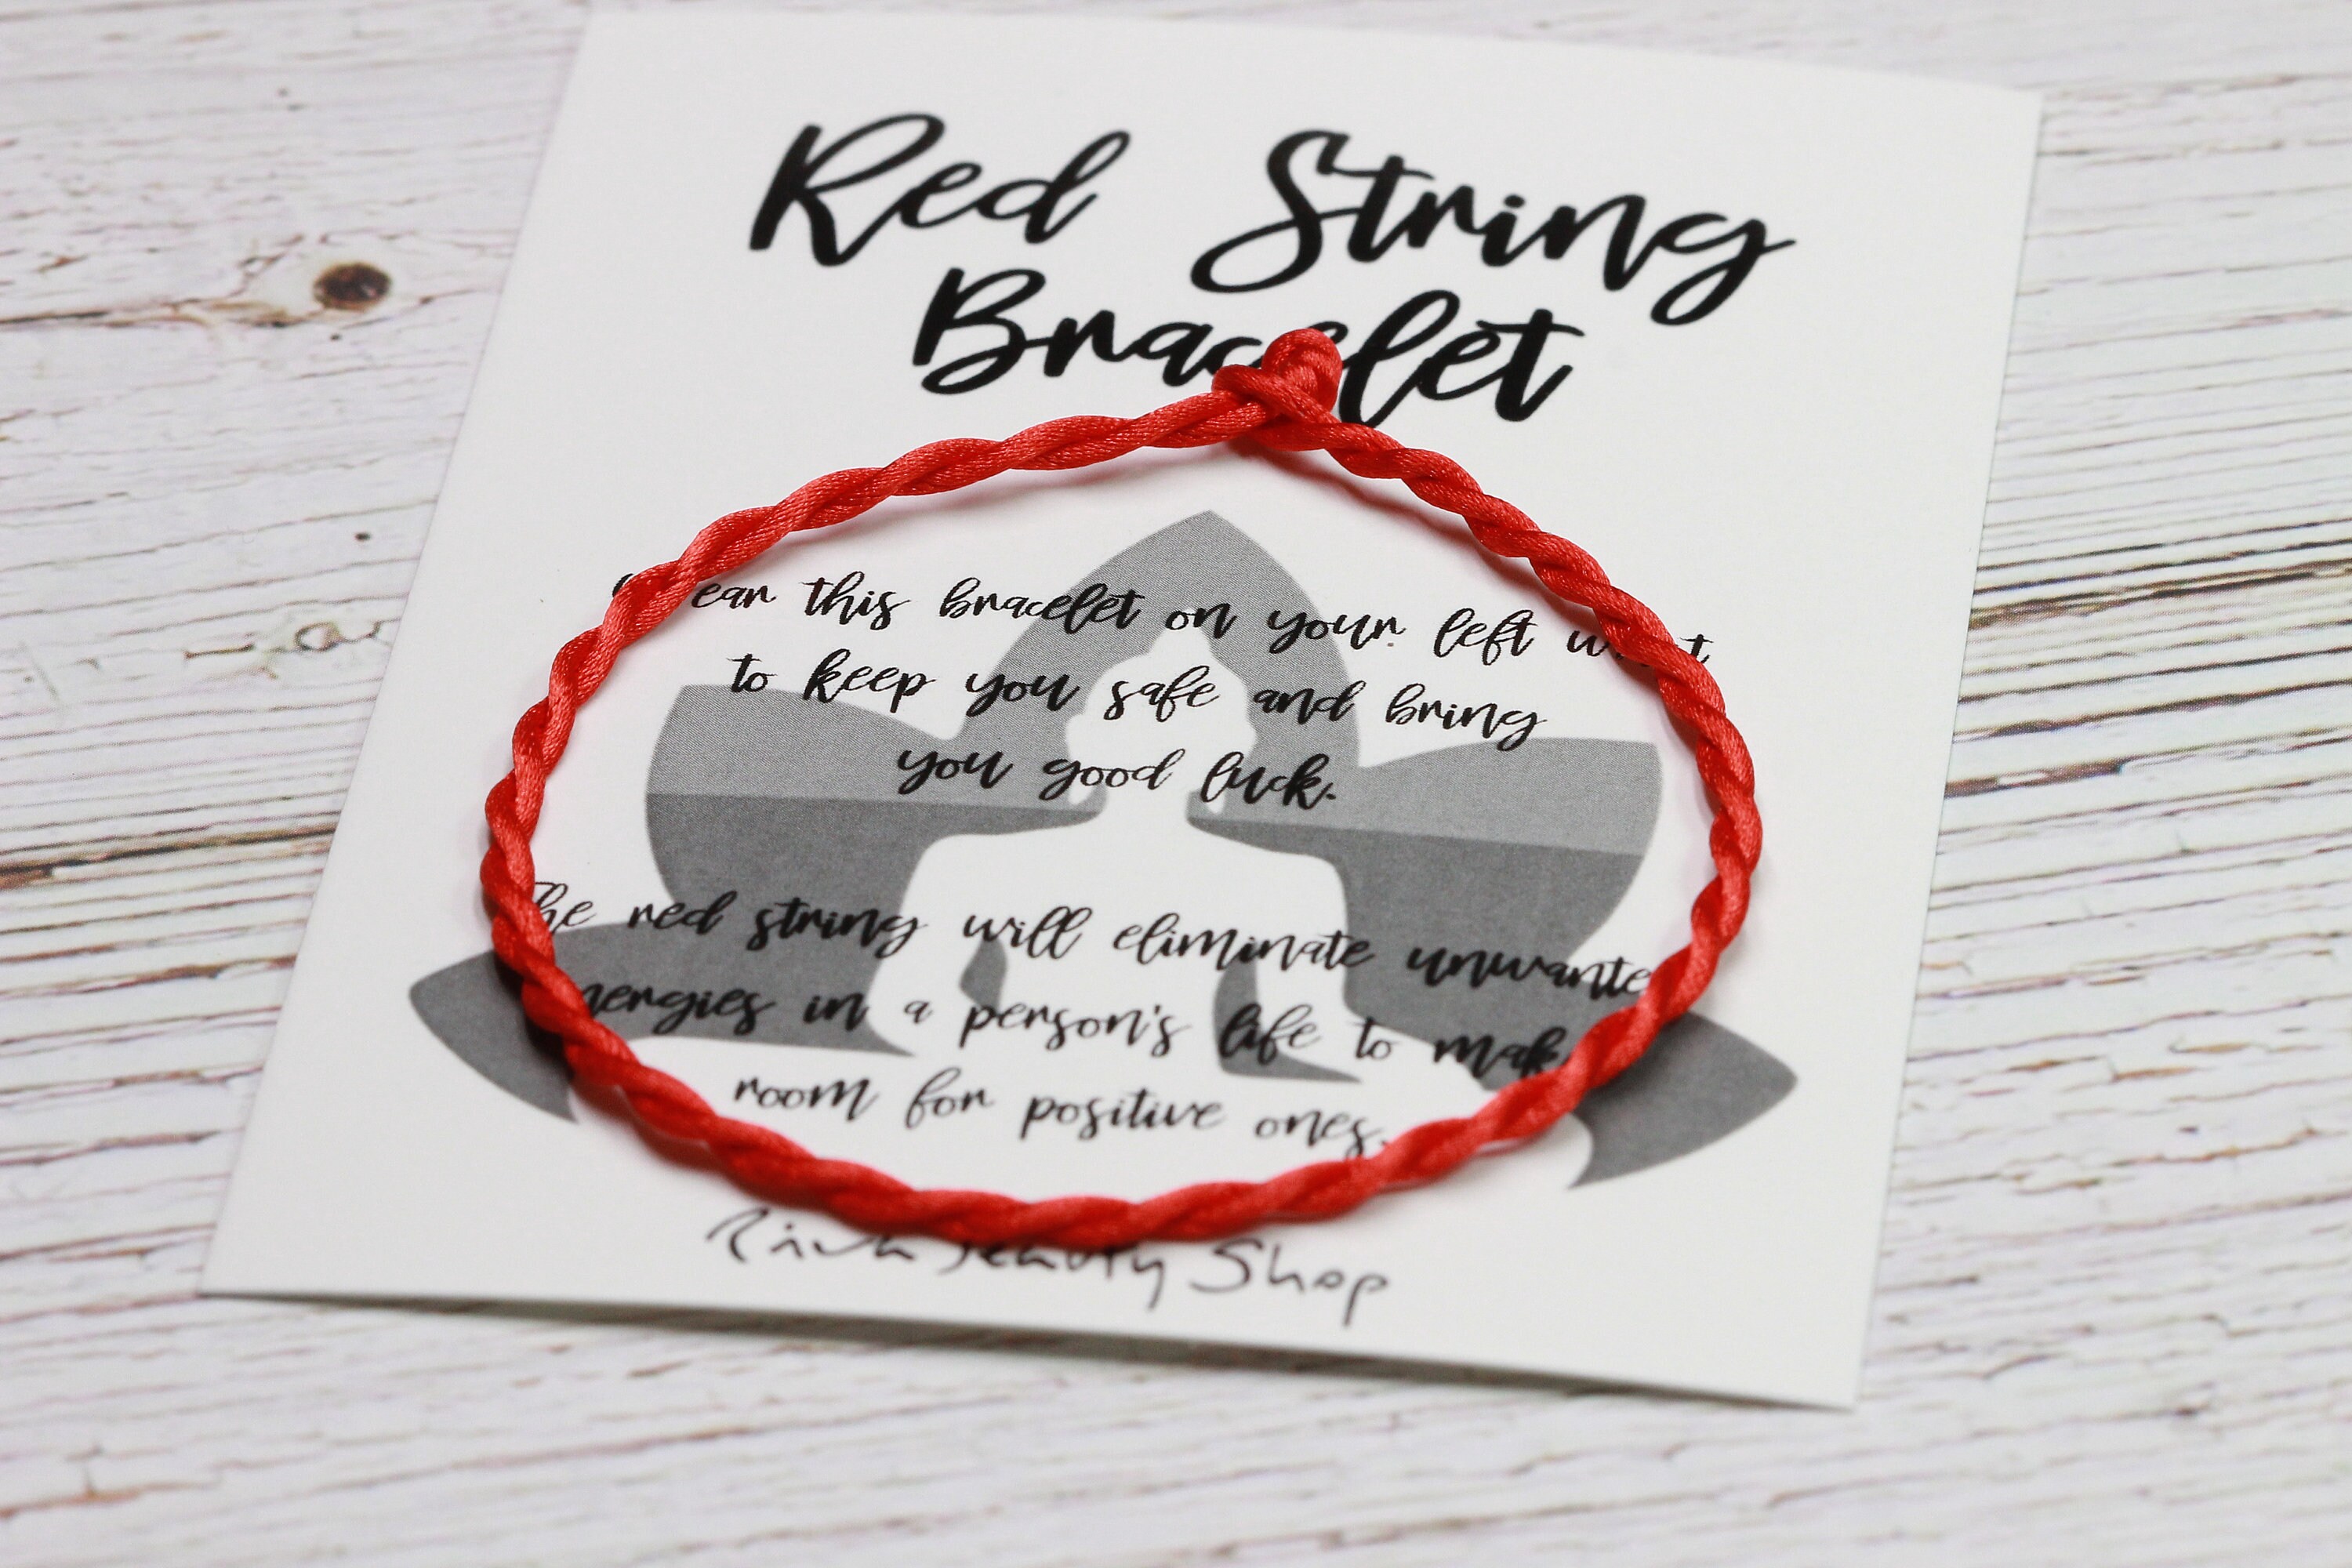 Red String
Bracelet
Wear this bracelet on your left wrist
to keep you safe and bring
you good luck.
The red string will eliminate unwanted
energies in a person's life to make
room for positive ones.
Beauty Shop